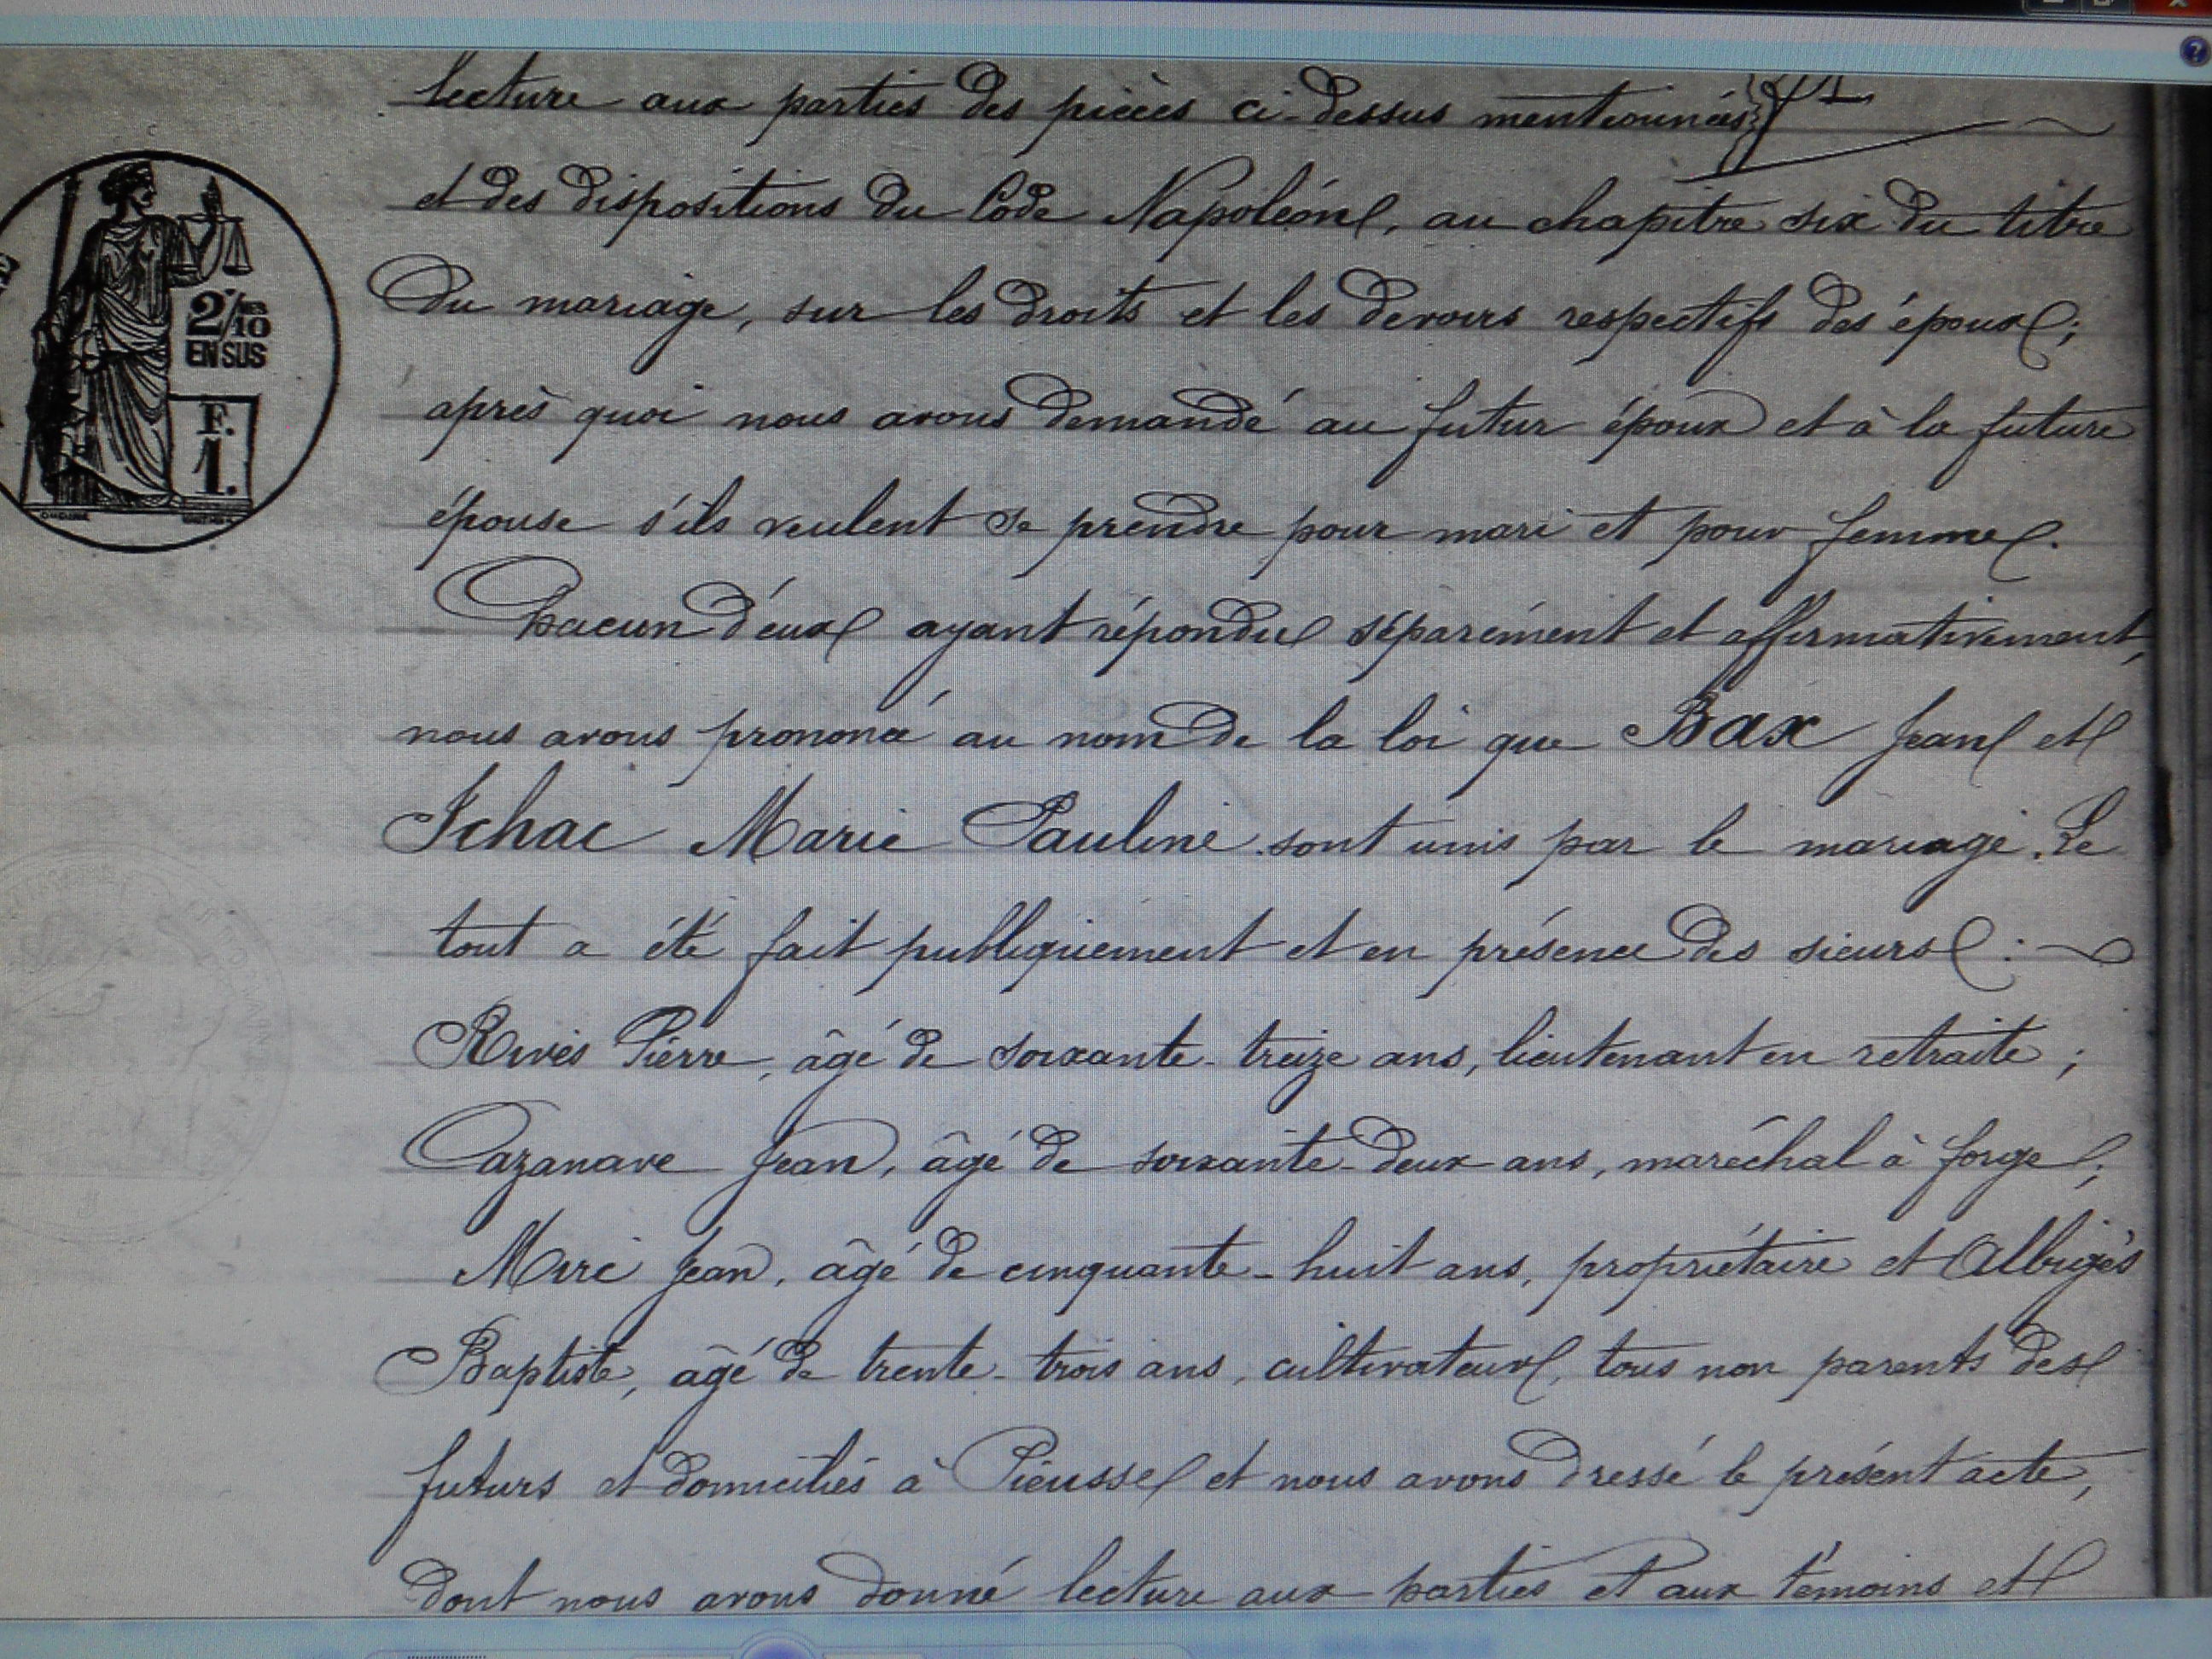 lecture aux parties des pièces ci-dessus mentionnées
et des dispositions du Code Napoléon, au chapitre six du titre
du mariage, sur les droits et les devoirs respectifs des époux;
après quoi nous avons demandé au futur époux et à la future
épouse s'ils veulent se prendre pour mari et pour femme.
Chacun d'eux ayant répondu séparément et affirmativement,
nous avons prononcé au nom de la loi que Bax Jean et
Ichac Marie Pauline sont unis par le mariage. Le
tout a été fait publiquement et en présence des sieurs :
Rivès Pierre, âgé de soixante-treize ans, lieutenant en retraite;
Cazanave Jean, âgé de soixante-deux ans, maréchal à forge;
Jean, âgé de cinquante-huit ans, propriétaire et Albigès
Baptiste, âgé de trente-trois ans, cultivateur, tous non parents des
futurs et domiciliés à Pieusse et nous avons dressé le présent acte,
dont nous avons donné lecture aux parties et aux témoins et
2/10
EN SUS
F.
1.